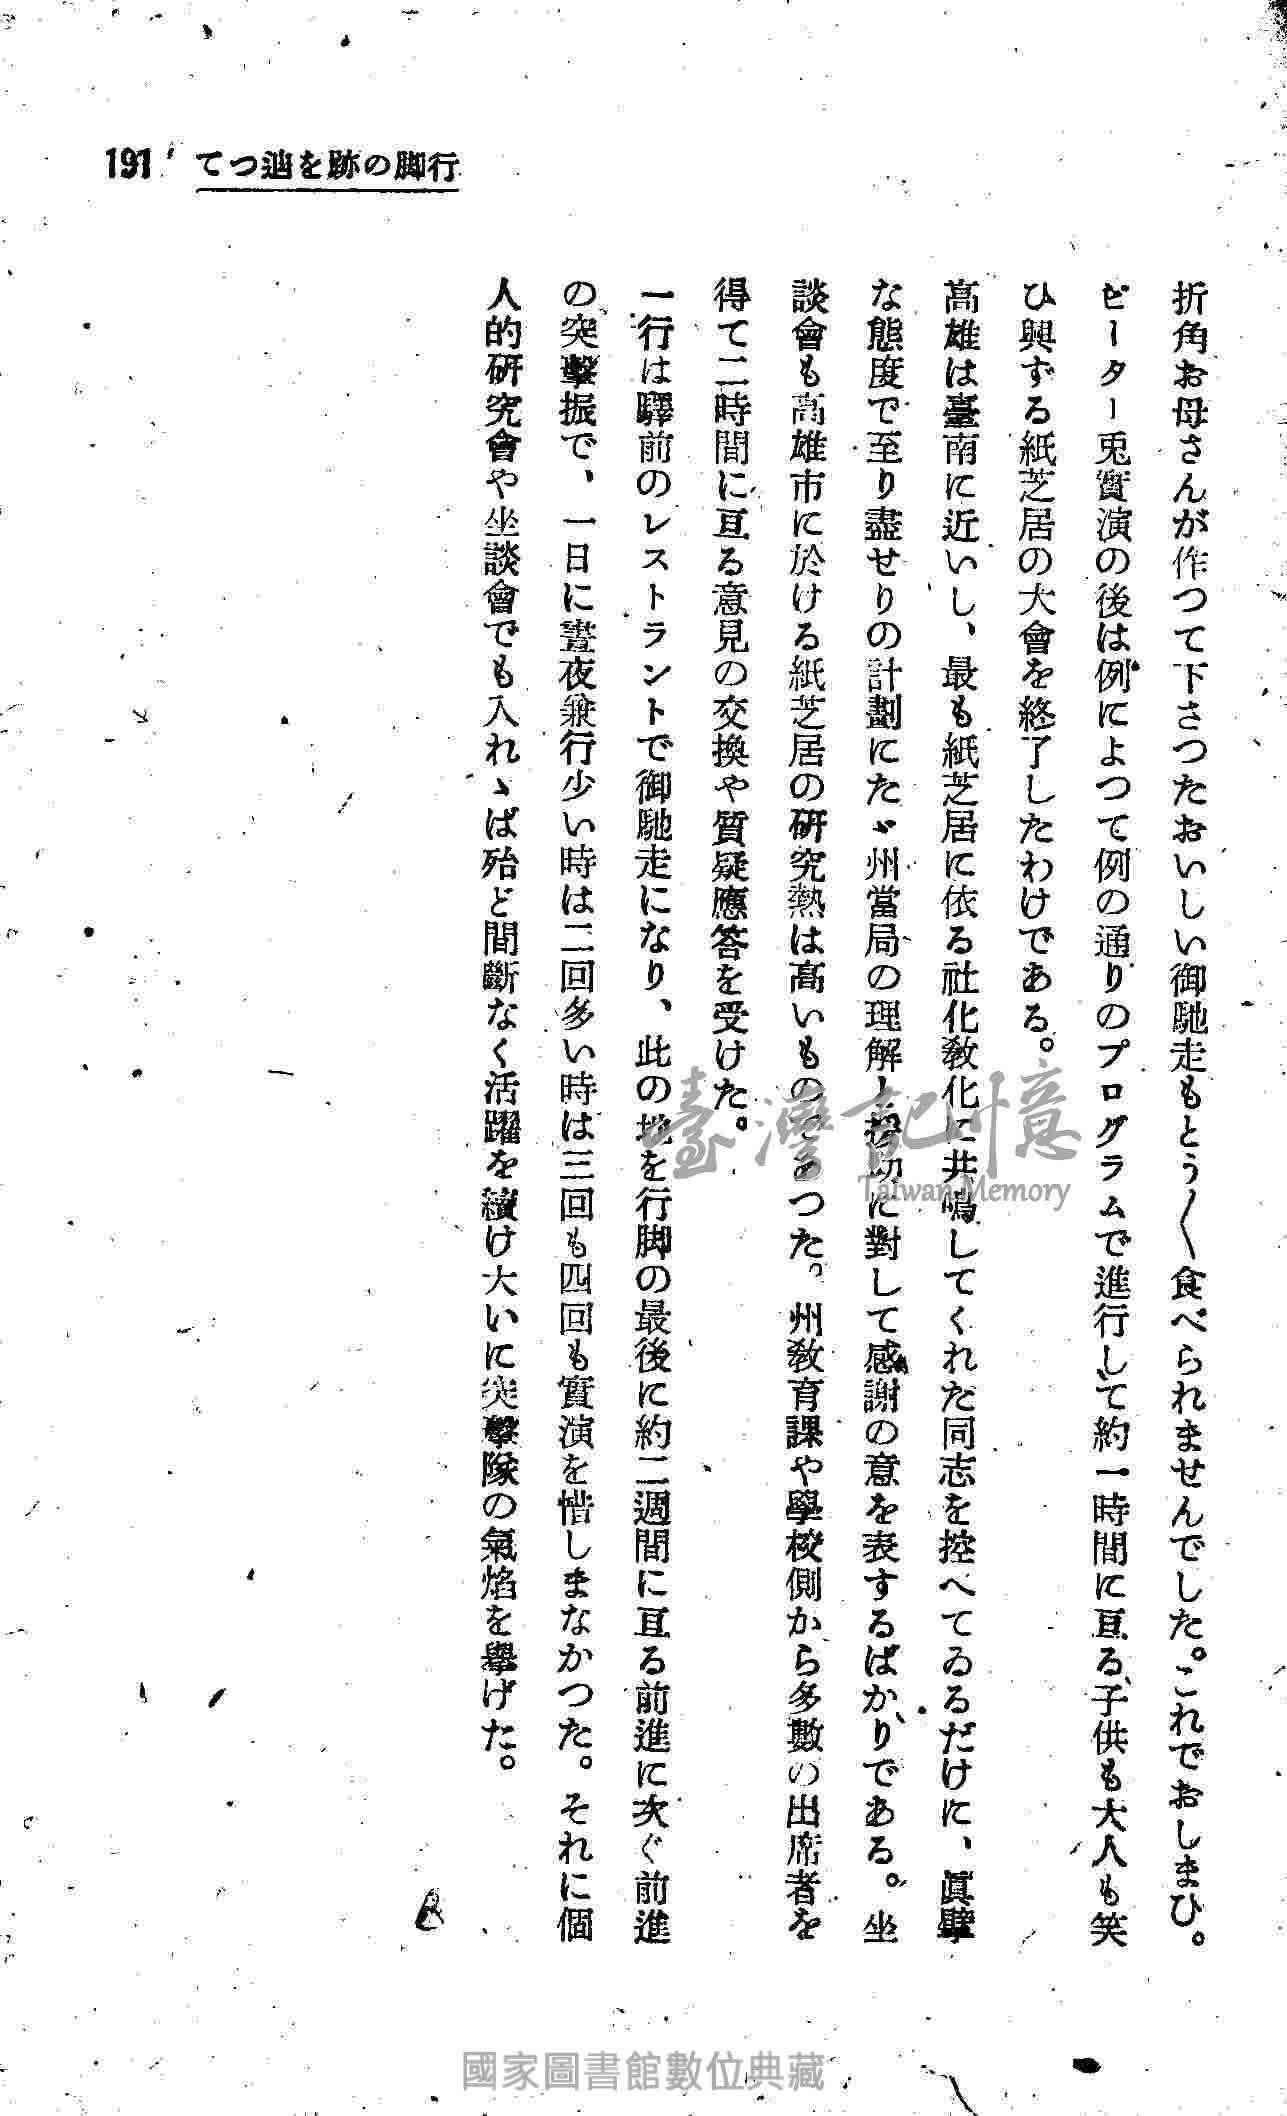 191 てつ辿を跡の脚行
折角お母さんが作つて下さつたおいしい御馳走もとう〱食べられませんでした。これでおしまひ。
ピーター兎實演の後は例によつて例の通りのプログラムで進行して約一時間に亘る、子供も大人も笑
ひ興ずる紙芝居の大會を終了したわけである。
高雄は臺南に近いし、最も紙芝居に依る社化敎化に共鳴してくれた同志を控へてゐるだけに、眞摯
な態度で至り盡せりの計劃にたゞ州當局の理解と援助に對して感謝の意を表するばかりである。坐
談會も高雄市に於ける紙芝居の硏究熱は高いものであつた。州敎育課や學校側から多數の出席者を
得て二時間に亘る意見の交換や質疑應答を受けた。
一行は驛前のレストラントで御馳走になり、此の地を行脚の最後に約二週間に亘る前進に次ぐ前進
の突擊振で、一日に晝夜兼行少い時は二回多い時は三回も四回も實演を惜しまなかつた。それに個
人的硏究會や坐談會でも入れゝば殆ど間斷なく活躍を續け大いに突擊隊の氣焰を擧げた。
臺灣記憶
Taiwan Memory
國家圖書館數位典藏